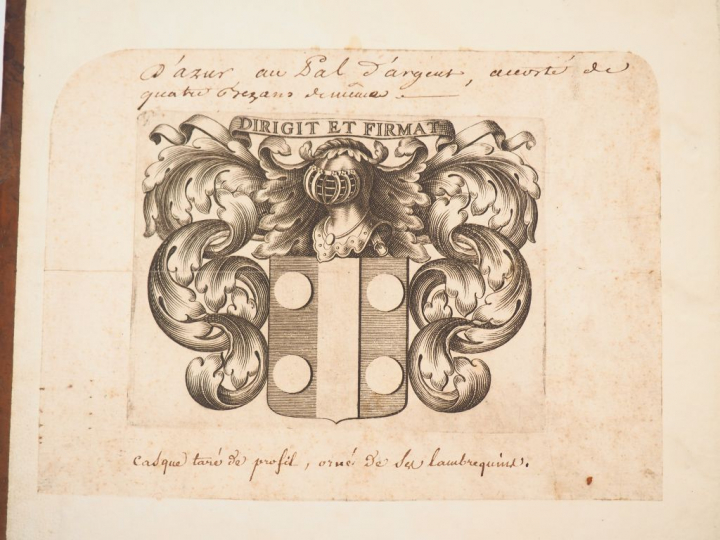 D'azur au Pal d'argent, accosté de
quatre Bezans de même
DIRIGIT ET FIRMAT
casque taré de profil, orné de ses lambrequins.